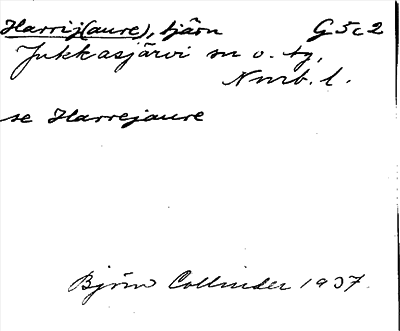 Harrij(aure), tjärn G5c2
Jukkasjärvi sn o. tg,
Nnrb. l.
se Harrejaure
Björn Collinder 1937.